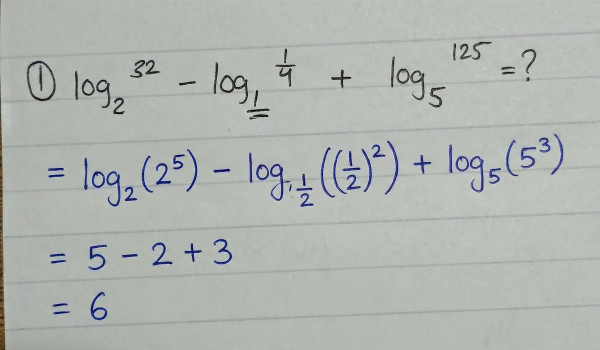 ① log₂ 32 − log_1/= 1/4 + log₅ 125 = ?
= log₂(2⁵) − log_1/2((1/2)²) + log₅(5³)
= 5 − 2 + 3
= 6